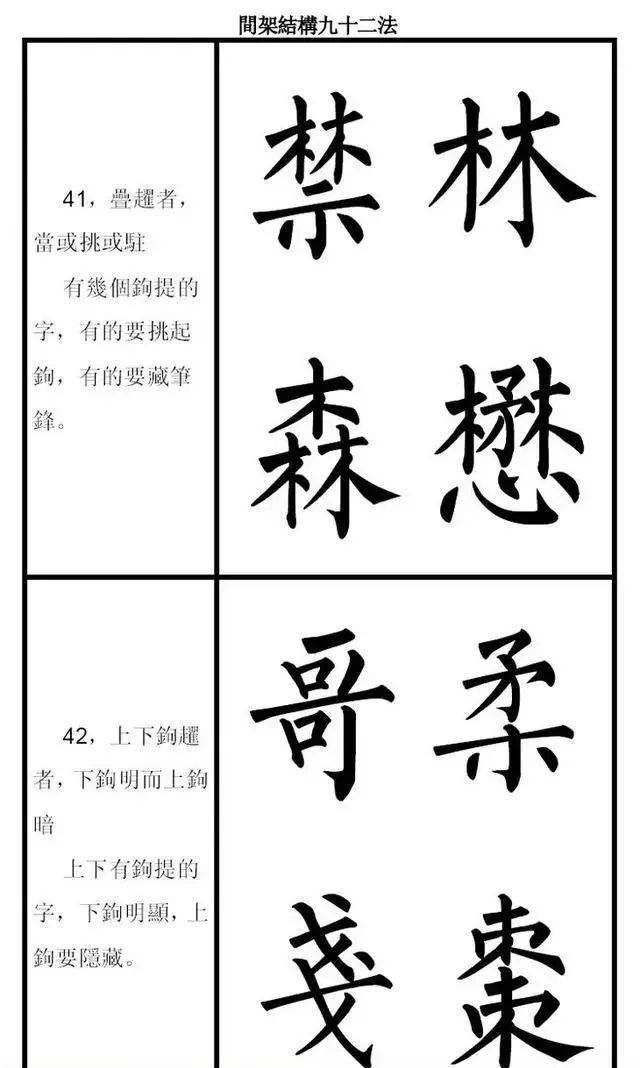 間架結構九十二法
41，疊趯者，
當或挑或駐
有幾個鉤提的
字，有的要挑起
鉤，有的要藏筆
鋒。
禁林
森懋
42，上下鉤趯
者，下鉤明而上鉤
暗
上下有鉤提的
字，下鉤明顯，上
鉤要隱藏。
哥柔
戔棗